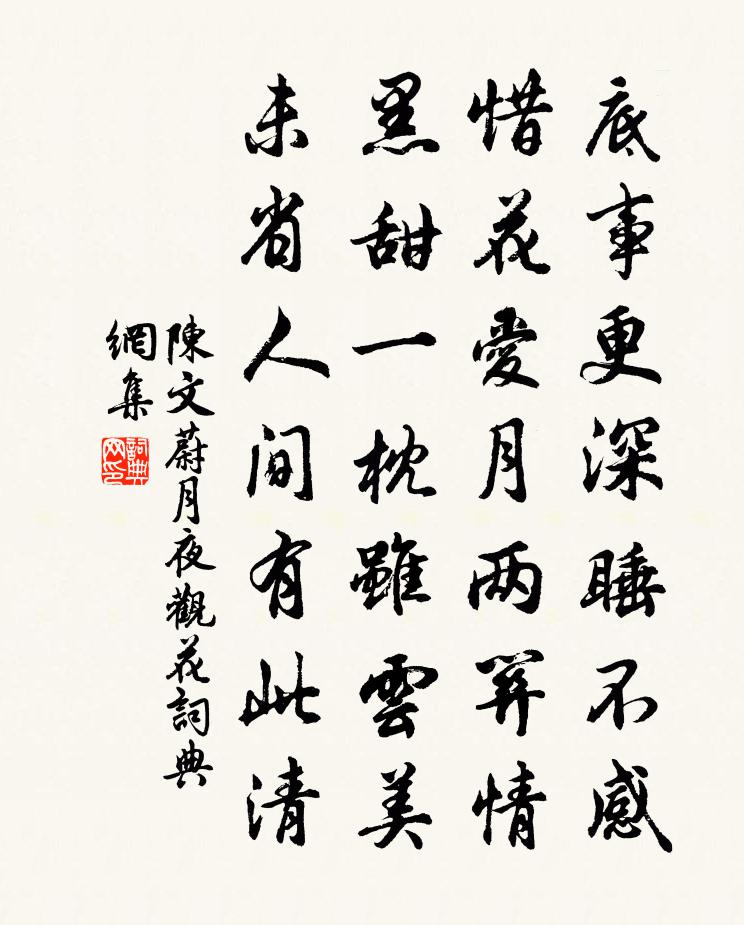 底事更深睡不感
惜花愛月两算情
黑甜一枕雖雲美
未省人间有此清
陳文蔚月夜觀花詞典
網集
詞典
网印